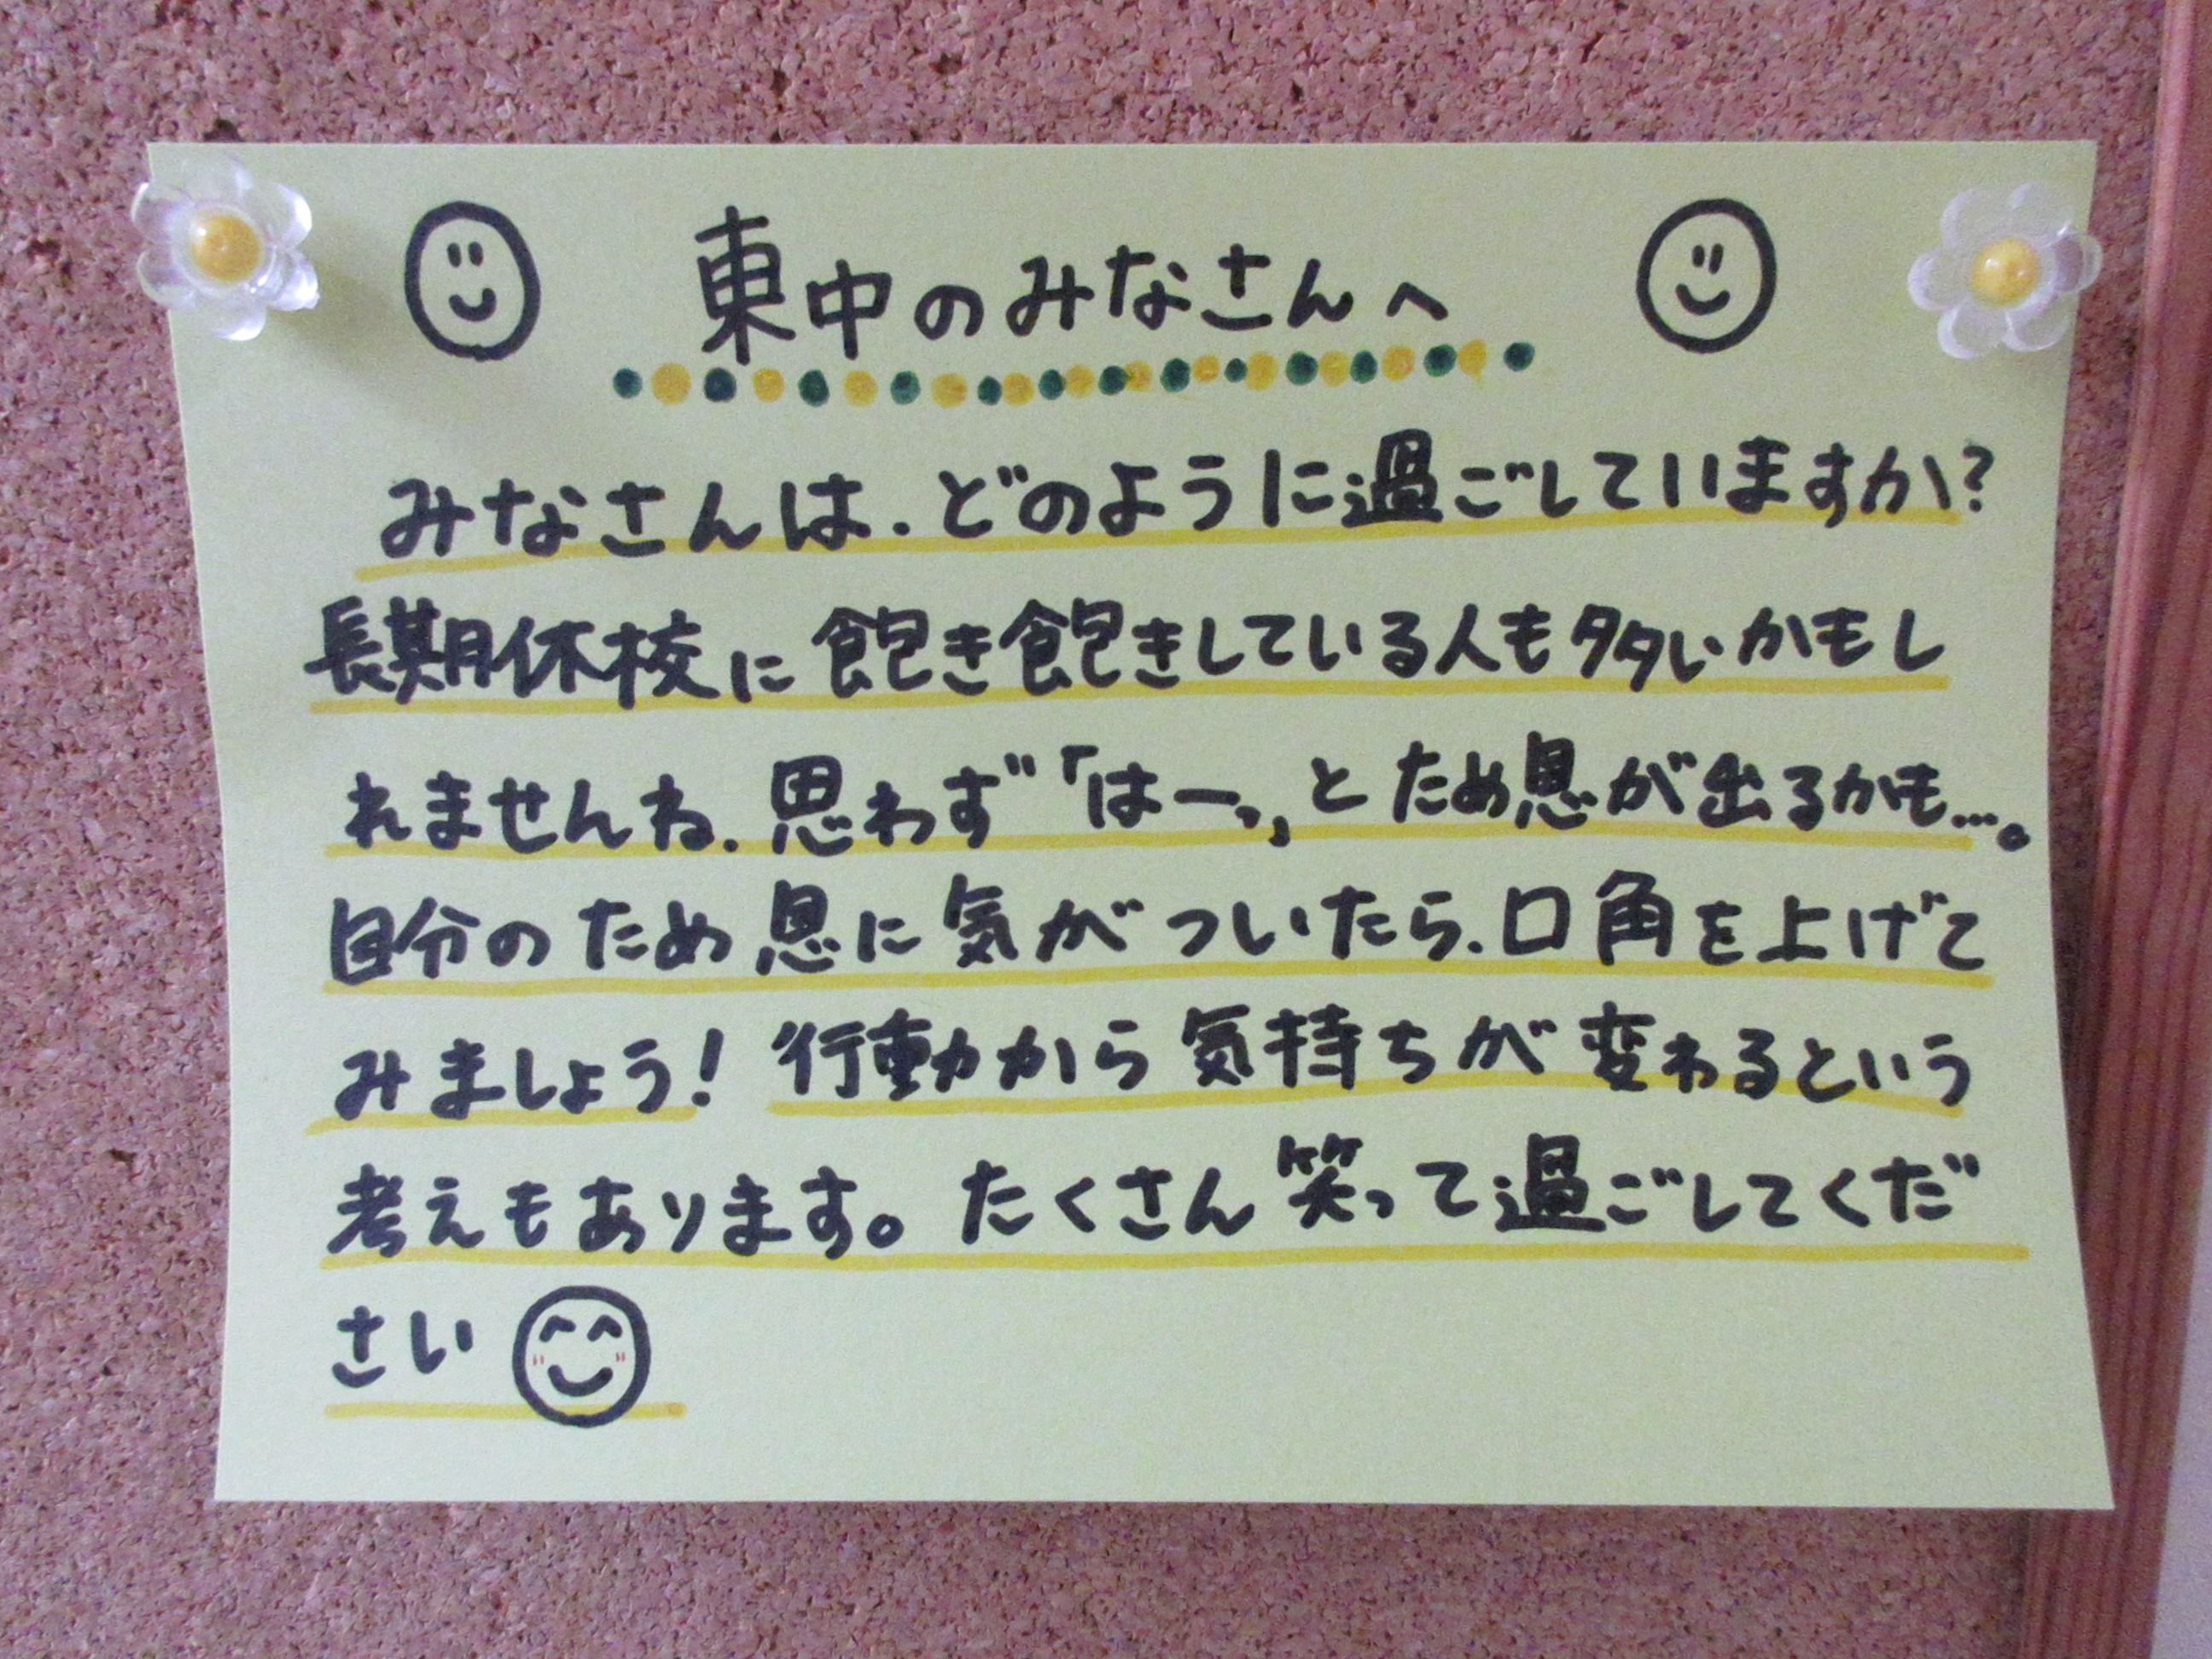 東中のみなさんへ
みなさんは、どのように過ごしていますか?
長期休校に飽き飽きしている人も多いかもし
れませんね。思わず「はーっ」とため息が出るかも…。
自分のため息に気がついたら、口角を上げて
みましょう!行動から気持ちが変わるという
考えもあります。たくさん笑って過ごしてくだ
さい